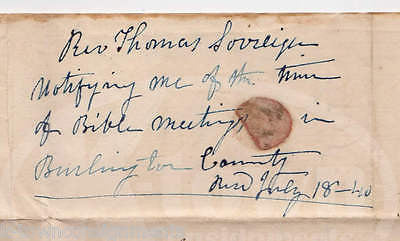 Rev Thomas Sovreign
Notifying me of the time
of Bible meetings in
Burlington County
Recd July 18-40